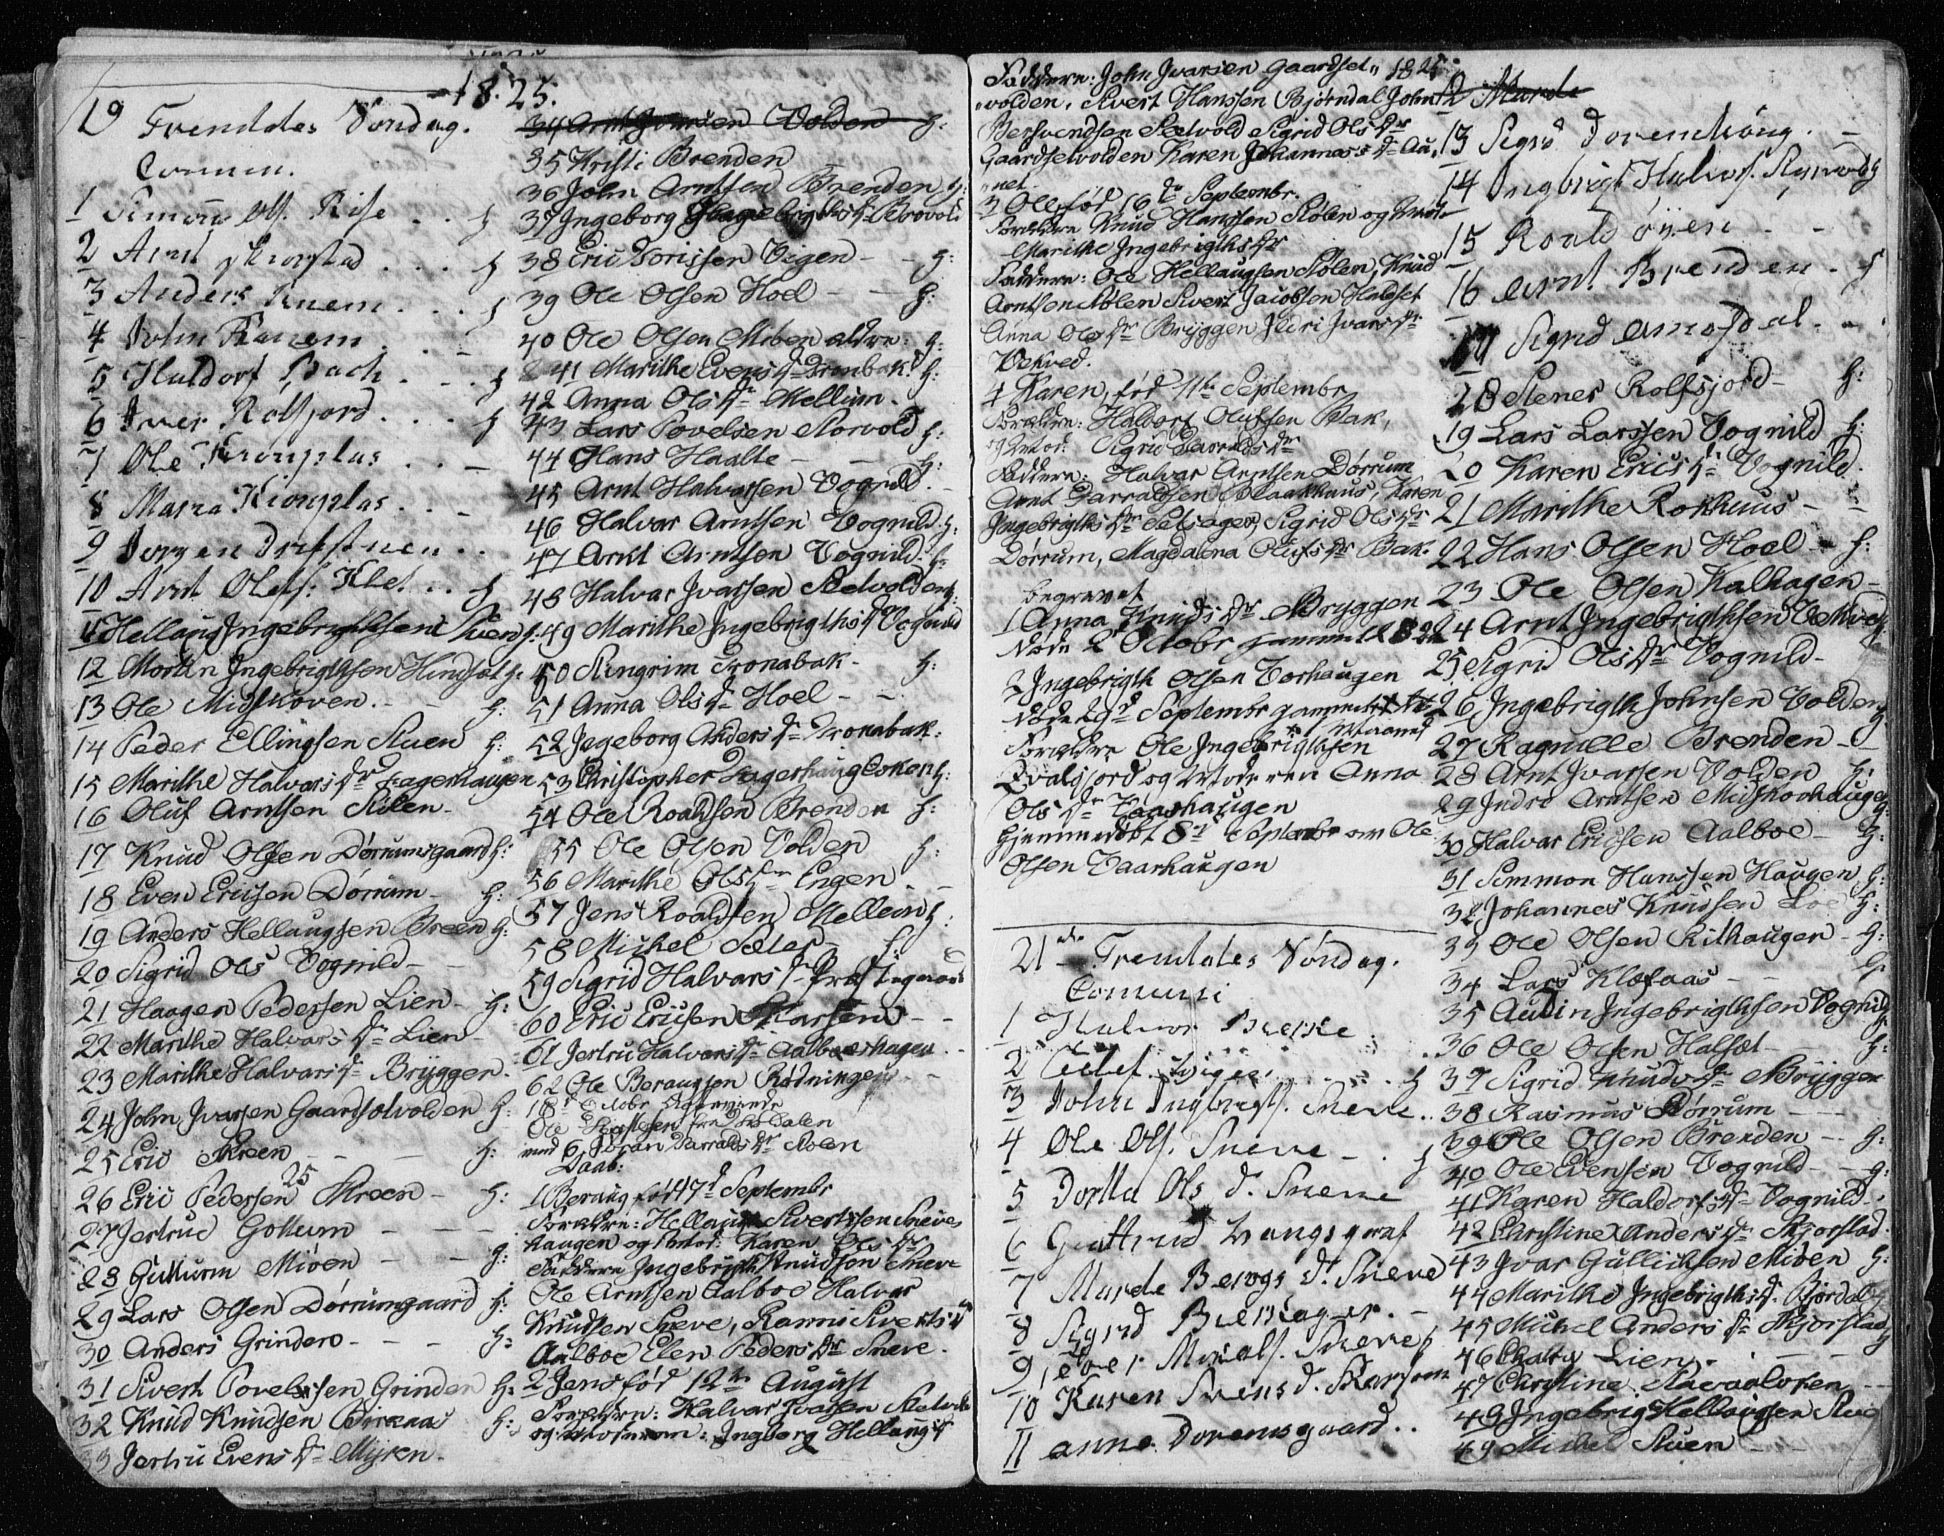 1825.
19 Trendtes Søndag.
Comun.
1 Simon Ols. Rise . . h
2 Arnt Skorstad . . . h
3 Anders Kuem . . . h
4 John Kanem . . -
5 Haldorf Bach . . . h
6 Iver Rolfjord . . . h
7 Ole Kronplas . . -
8 Marra Kronplas . . -
9 Jørgen Drifstuen . .
10 Arnt Olefs: Klet . . h
11 Hellaug Ingebrigthsen Stuen h:
12 Morten Ingebrigthsen Hindset h:
13 Ole Midshoven - - h:
14 Peder Ellingsen Stuen h:
15 Marithe Halvars Dr Fagerhaugen
16 Oluf Arntsen Stølen -
17 Knud Olsen Dørrumsgaard h:
18 Even Ericsen Dørrum - h:
19 Anders Hellaugsen Breen h:
20 Sigrid Ols Vognild - -
21 Haagen Pedersen Lien - h:
22 Marithe Halvars Dr Lien -
23 Marithe Halvars Dr Brÿggen -
24 John Ivarsen Gaardsetvolden h:
25 Eric Kreen - - - h:
25
26 Eric Pedersen Kreen - h:
27 Jertrud Gottum - - -
28 Gutturm Mioen - - g:
29 Lars Olsen Dørrumgaard h:
30 Anders Grindero - - - h:
31 Sivert Povelssen Grinden h:
32 Knud Knudsen h:
33 Jertru Evens Dr Mÿren -
34 Arnt Jonssen Volden h:
35 Kristi Brenden -
36 John Arntsen Brenden h:
37 Ingeborg
38 Eric Jorissen Vigen - - h:
39 Ole Olsen Hoel - - h:
40 Ole Olsen Moen aldre: h:
41 Marithe Evens Dr Kronbak: h:
42 Anna Ols Dr Mellum -
43 Lars Povelsen Norvold h:
44 Hans Haalte - - - h:
45 Arnt Halvorsen Vognild. -
46 Halvar Arntsen Vognild h:
47 Arnt Arntsen Vognild. h:
48 Halvar Ivarsen Sætvolden h:
49 Marithe Ingebrigths Dr Vognild
50 Stengrim Kronabak - h:
51 Anna Ols Dr Hoel - -
52 Ingeborg Anders Dr Kronabak.
53 Christopher Fagerhaug Eskon h:
54 Ole Roaldsen Brenden h:
55 Ole Olsen Volden h:
56 Marithe Ols Dr Engen - -
57 Jens Roaldsen Mellem h:
58 Mickel Sæter - h:
59 Sigrid Halvars Dr Præstegaard
60 Eric Ericsen Karsem - -
61 Jertru Halvars Dr Aalboeshagen - -
62 Ole Beraugsen Rødningen - -
18d Octobr
Ole fra Soldalen
med Joran Varralds Dr Stølen
Daab:
1 Beraug fød 17d Septembr
Forældre: Hellaug Sivertssen Sneves
haugen og Mod: Karen Ols Dr
Faddere Ingebrigth Knudson Sneve
Ole Arntsen Aalboe Halvar
Knudsen Sneve, Ranni Siverts Dr
Aalboe Elen Peders Dr Sneve.
2 Jens fød 12te August
Forældre: Halvar Ivarsen Sætvold
og Moderen: Ingborg Hellaugs Dr
Faddere: John Ivarsen Gaardset„ 1825.
„volden, Sivert Hanssen Bjørndal John
Berhvendsen Sætvold Sigrid Ols Dr
Gaardsetvolden Karen Johannes Dr Au„
„net.
3 Ole fød 16de Septembr.
Forældre Knud Hanssen Stølen og Mod:
Marithe Ingebrigths Dr
Faddere: Ole Hellaugsen Stølen, Knud
Arntsen Stølen Sivert Jacobsen Haldset
Anna Ols Dr Brÿggen Ivars Dr
Vekved.
4 Karen, fød 11te Septembr
Forældre: Haldorf Olufsen Bak,
og Mod: Sigrid Dr
Faddere: Halvar Arntsen Dørrum
Arnt Blaakhaus, Karen
Ingebrigths Dr Sigrid Ols Dr
Dørrum, Magdalena Olufs Dr Bak.
begravet
1 Anna Knuds Dr Brÿggen
døde 2 Octobr gammel
2 Ingebrigth Olsen Vorhaugen
døde 29d Septembr gammel
Maaned
Forældre Ole Ingebrigthsen
Hvalsjord og Moderen Anna
Ols Dr Vaarhaugen
Hjemmedøbt 8d Septembr om Ole
Olsen Vaarhaugen
21de Trendtes Søndag.
Comuni
1 Halvor Brekke
2 . . . . h
3 John Ingbrigts. Sneve. .
4 Ole Ols. Sneve - . h
5 Dortta Ols D. Sneve
6 Guttrud Vangsgraf
7 Marde Berogs D. Sneve
8 Sigrid . -
9 Sneve h
10 Karen Svens D. Karsem
11 Anne Doremsgaard . .
12 Marde
13 Sigrd Doremkóug. -
14 Ingbrigt Halvor.
15 Roald øÿen - -
16 Arnt Brenden . h
17 Sigrid Amosdal . -
18 Stener Rolfsjord - h:
19 Lars Larssen Vognild h:
20 Karen Erics Dr Vognild.
21 Marithe Rokhuus - -
22 Hans Olsen Hoel - h:
23 Ole Olsen Kalhagen -
24 Arnt Ingebrigthsen Vekved
25 Sigrid Ols Dr Vognild -
26 Ingebrigth Johnsen Volden h:
27 Ragnille Brenden - -
28 Arnt Ivarsen Volden h:
29 Indre Arntsen Midshovhaugen
30 Halvar Ericsen Aalboe - h:
31 Simmon Hanssen Haugen h:
32 Johannes Knudsen Loe h:
33 Ole Olsen Rithaugen - h:
34 Lars Klæfaas - - h:
35 Audin Ingebrigthsen Vognild
36 Ole Olsen Halset - h:
37 Sigrid Knuds Dr Brÿggen
38 Rasmus Dørrum - -
39 Ole Olsen Brenden - - h:
40 Ole Evensen Vognild - - g:
41 Karen Haldorfs Dr Vognild -
42 Christine Anders Dr Skjorstad
43 Ivar Gullicksen Mioen h:
44 Marithe Ingebrigths D. Bjørdal
45 Michel Anders Dr Skjorstad
46 Lien - . - -
47 Christine
48 Ingebrigt Hellaugsen Stuen
49 Mickel Stuen - -